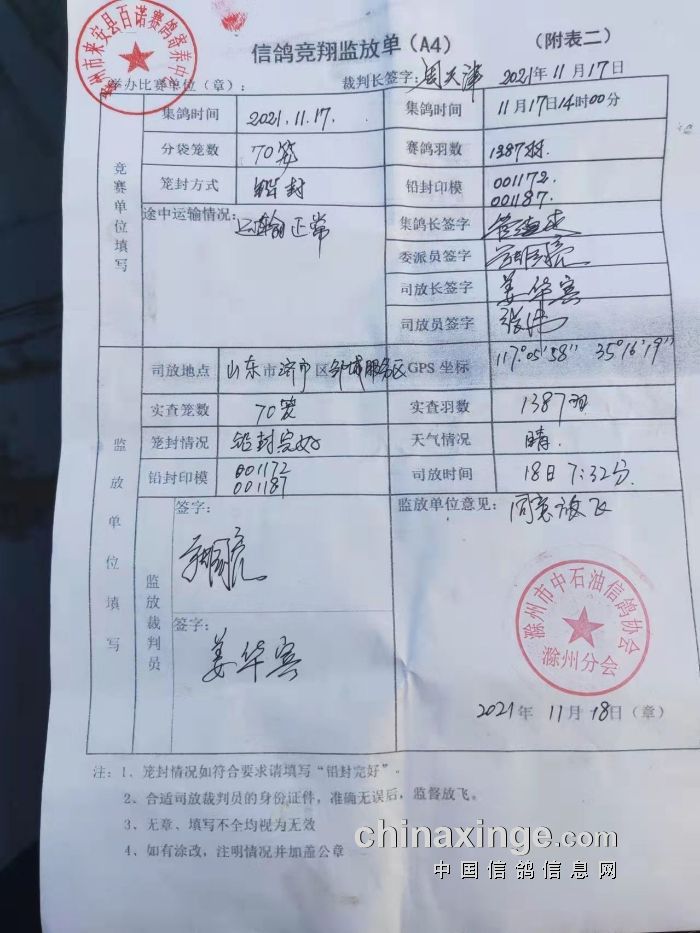 滁州市来安县百诺赛鸽寄养中心
信鸽竞翔监放单（A4） （附表二）
举办比赛单位（章）： 裁判长签字：周天津 2021年11月17日
竞赛单位填写
集鸽时间 2021.11.17. 集鸽时间 11月17日14时00分
分袋笼数 70笼 赛鸽羽数 1387羽.
笼封方式 铅封 铅封印模 001172.
001187.
途中运输情况：运输正常 集鸽长签字
委派员签字
司放长签字 姜华宾
司放员签字 张伟
监放单位填写
司放地点 山东市济宁区邹城服务区 GPS坐标 117°05′58″ 35°16′19″
实查笼数 70笼 实查羽数 1387羽
笼封情况 铅封完好 天气情况 晴.
铅封印模 001172
001187 司放时间 18日7:32分.
监放裁判员
签字： 监放单位意见：同意放飞
签字：
姜华宾
滁州市中石油信鸽协会
滁州分会
2021年11月18日（章）
注：1、笼封情况如符合要求请填写“铅封完好”。
2、合适司放裁判员的身份证件，准确无误后，监督放飞。
3、无章、填写不全均视为无效
4、如有涂改，注明情况并加盖公章
chinaxinge.com
中国信鸽信息网